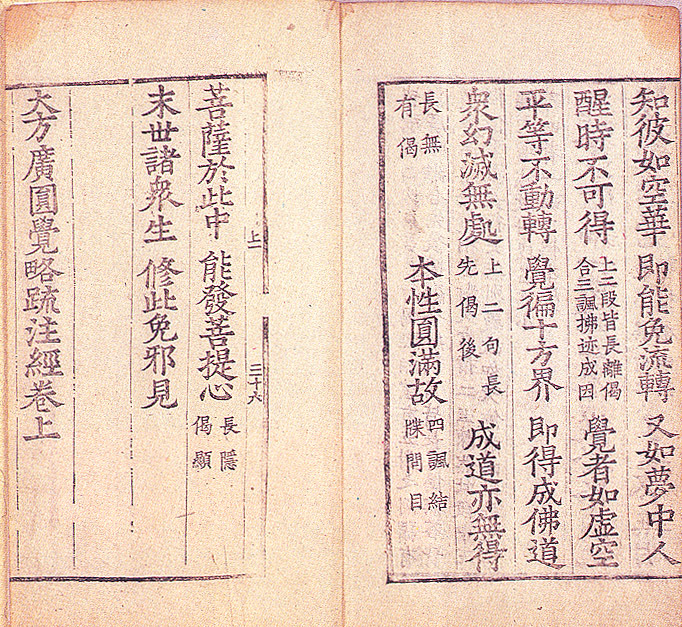 知彼如空華 即能免流轉 又如夢中人
醒時不可得 上二段皆長離偈合三諷拂迹成因 覺者如虛空
平等不動轉 覺徧十方界 即得成佛道
衆幻滅無處 上二句長先偈後 成道亦無得
長無有偈 本性圓滿故 四諷結牒問目
上一 三十六
菩薩於此中 能發菩提心 長隱偈顯
末世諸衆生 修此免邪見
大方廣圓覺略疏注經卷上